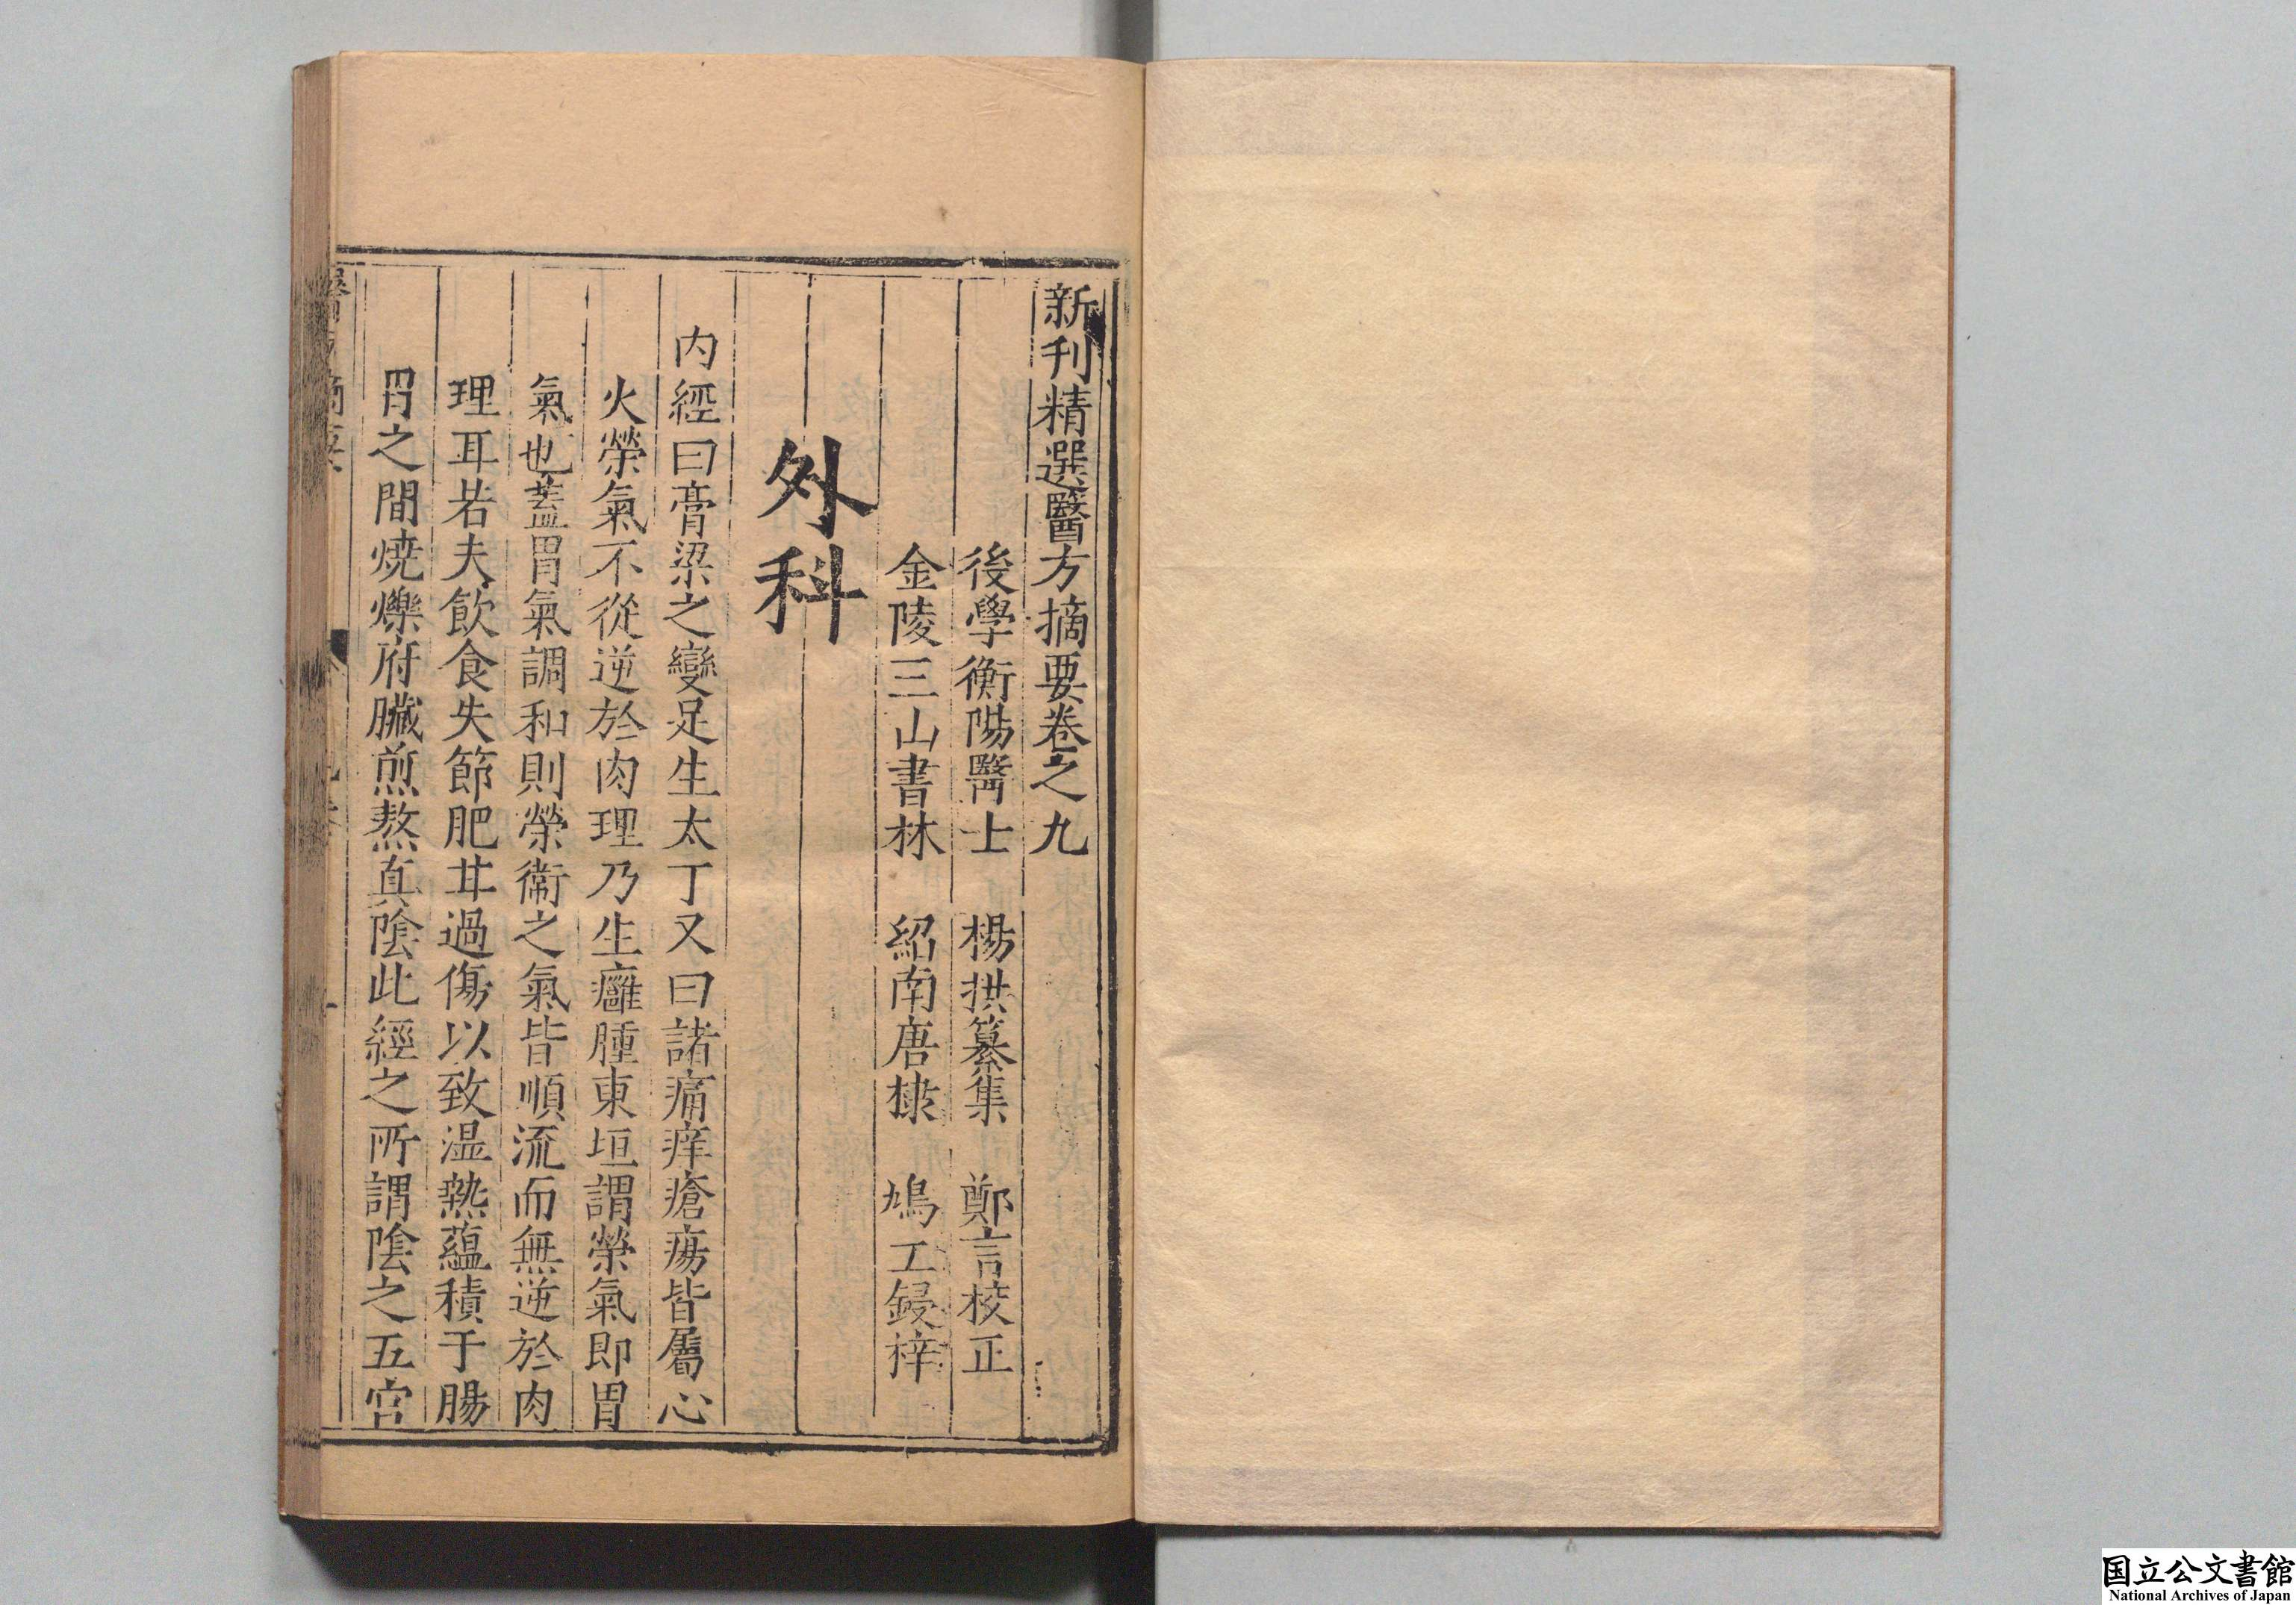 新刊精選醫方摘要卷之九
後學衡陽醫士　楊拱纂集　鄭言校正
金陵三山書林　紹南唐棣　鳩工鋟梓
外科
内經曰膏梁之變足生太丁又曰諸痛痒瘡瘍皆屬心
火榮氣不從逆於肉理乃生癰腫東垣謂榮氣即胃
氣也蓋胃氣調和則榮衞之氣皆順流而無逆於肉
理耳若夫飲食失節肥甘過傷以致温熱蘊積于腸
胃之間燒爍府臟煎熬真陰此經之所謂陰之五宫
国立公文書館
National Archives of Japan